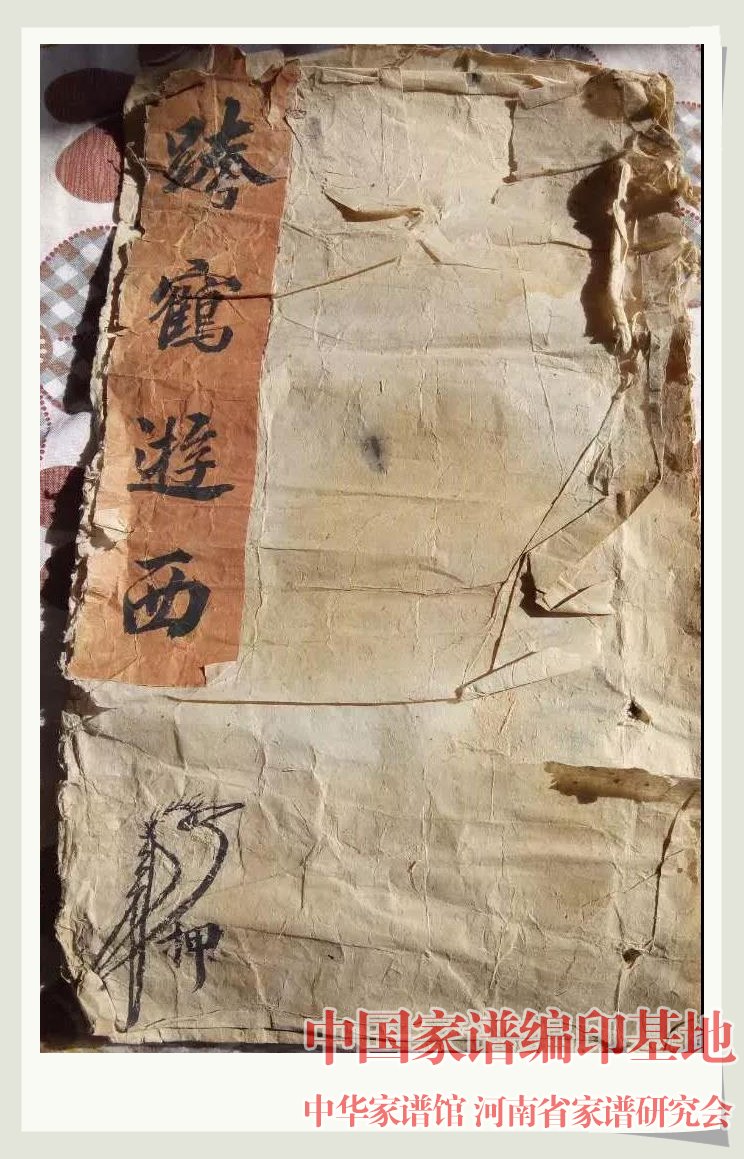 跨鶴遊西
押
中国家谱编印基地
中华家谱馆 河南省家谱研究会